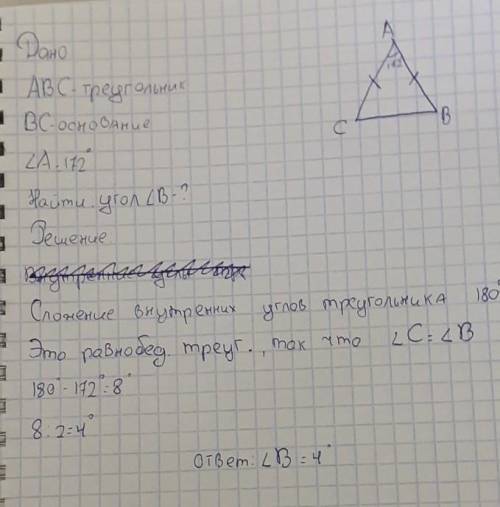 Дано
A
172°
C
B
ABC-треугольник
BC-основание
∠A. 172°
Найти угол ∠B-?
Решение
Сложение внутренних углов треугольника 180°
Это равнобед. треуг., так что ∠C=∠B
180°-172°=8°
8:2=4°
Ответ: ∠B=4°